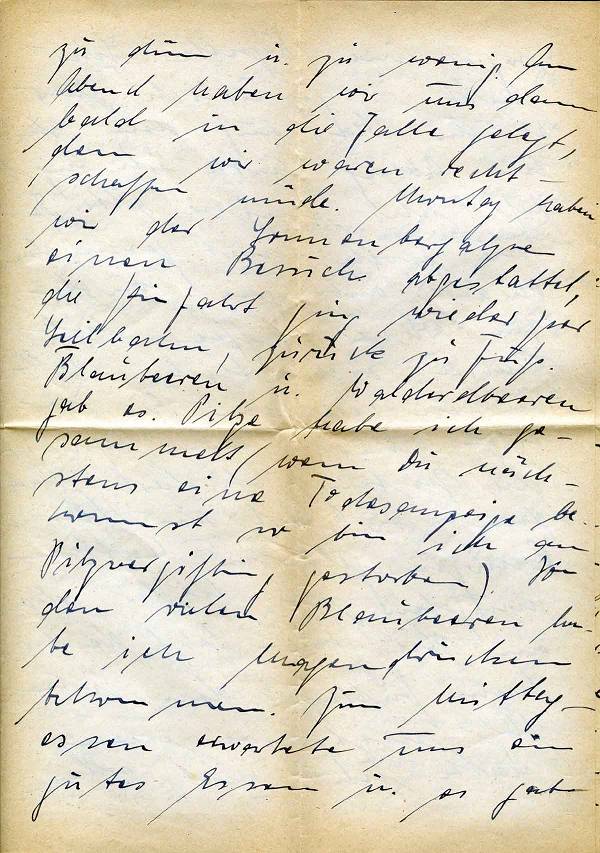 zu dünn u. zu wenig. Am
Abend haben wir uns dann
bald in die Falle gelegt,
denn wir waren recht-
schaffen müde. Montag haben
wir der Sonnenbergalpe
einen Besuch abgestattet,
die Hinfahrt ging wieder per
Seilbahn, zurück zu Fuß.
Blaubeeren u. Walderdbeeren
gab es. Pilze habe ich ge-
sammelt (wenn Du näch-
stens eine Todesanzeige be-
kommst so bin ich an
Pilzvergiftung gestorben) Von
den vielen Blaubeeren ha-
be ich Magendrücken
bekommen. Zum Mittag-
essen erwartete uns ein
gutes Essen u. es gab